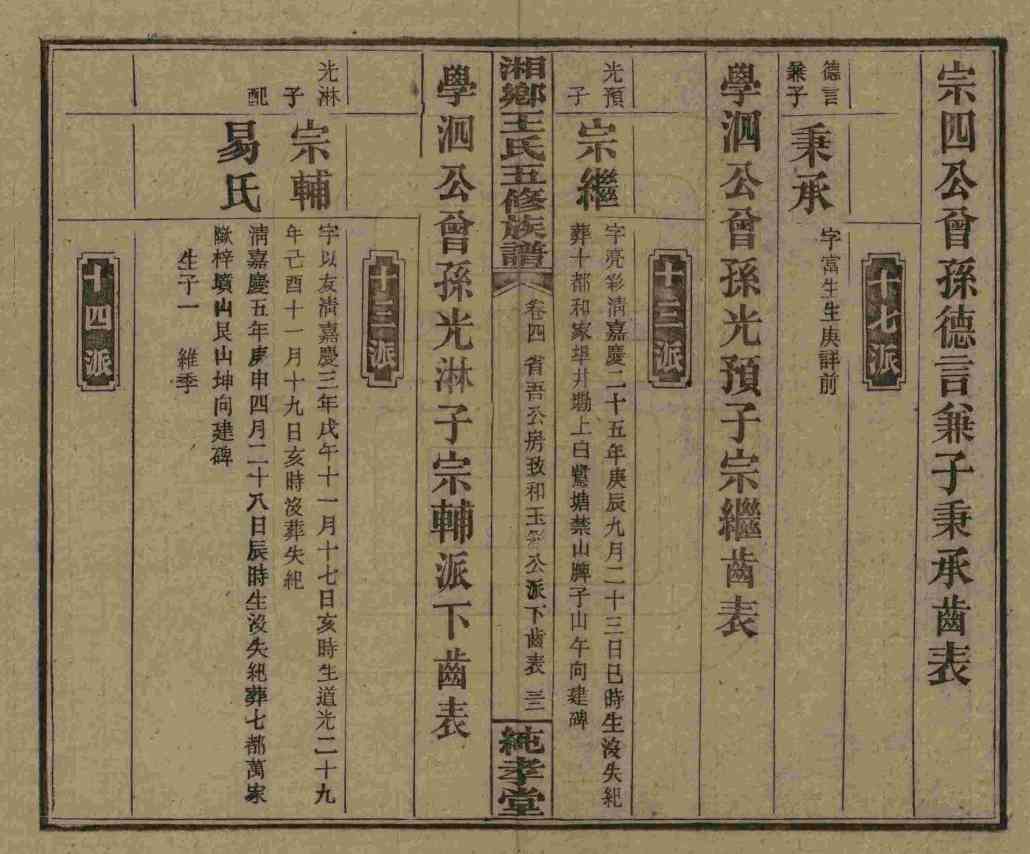 宗四公曾孫德言兼子秉承齒表
十七派
德言
兼子
秉承
字富生生庚詳前
學泗公曾孫光預子宗繼齒表
十三派
光預
子
宗繼
字亮彩淸嘉慶二十五年庚辰九月二十三日巳時生沒失紀
葬十都和家埠井塅上白鷺塘禁山脾子山午向建碑
湘鄉王氏五修族譜
卷四
省吾公房致和玉公派下齒表
純孝堂
學泗公曾孫光淋子宗輔派下齒表
十三派
光淋
子
宗輔
字以友淸嘉慶三年戊午十一月十七日亥時生道光二十九
年己酉十一月十九日亥時沒葬失紀
配
易氏
淸嘉慶五年庚申四月二十八日辰時生沒失紀葬七都萬家
梓壙山艮山坤向建碑
生子一 維季
十四派